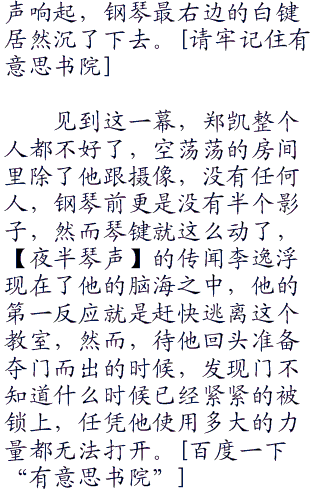 声响起，钢琴最右边的白键
居然沉了下去。[请牢记住有
意思书院]
见到这一幕，郑凯整个
人都不好了，空荡荡的房间
里除了他跟摄像，没有任何
人，钢琴前更是没有半个影
子，然而琴键就这么动了，
【夜半琴声】的传闻李逸浮
现在了他的脑海之中，他的
第一反应就是赶快逃离这个
教室，然而，待他回头准备
夺门而出的时候，发现门不
知道什么时候已经紧紧的被
锁上，任凭他使用多大的力
量都无法打开。[百度一下
“有意思书院”]